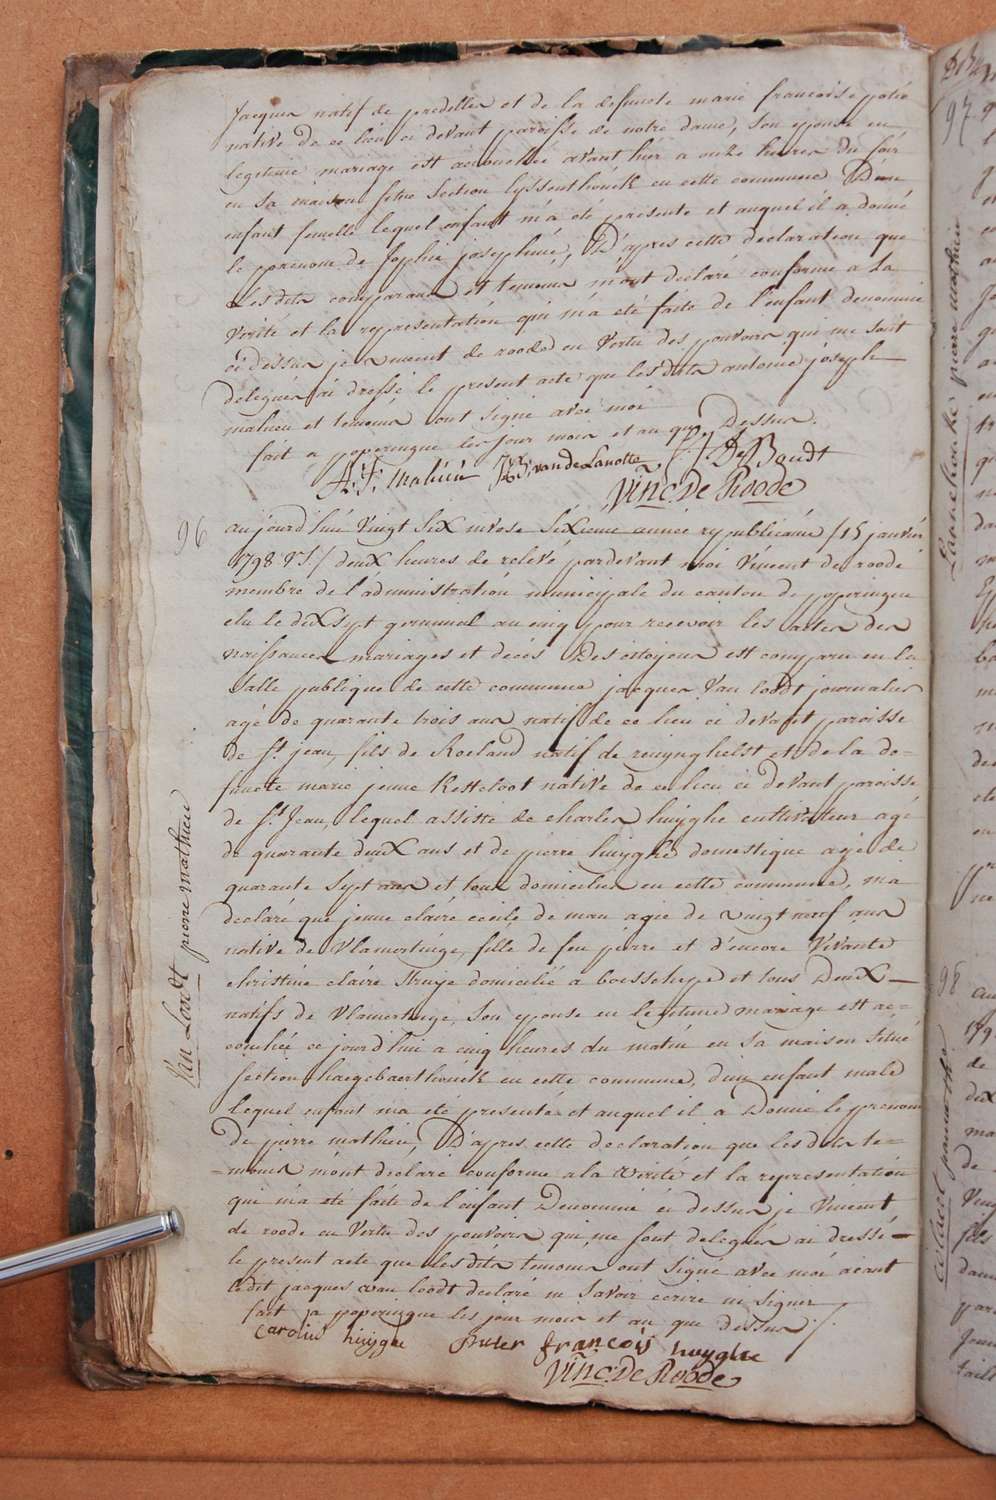 Jacques natif de predelles et de la defuncte marie francoise potié
native de ce lieu ci devant paroisse de notre dame, son epouse en
legitime mariage est accouchée avant hier a onze heures du soir
en sa maison sitné section lyssenthouck en cette commune D'un
enfant femelle lequel enfant m'a été presenté et auquel il a donné
le prenom de sophie josephine, D'apres cette declaration que
Lesdits comparans et temoins m'ont declaré conforme a La
verité et la representation qui m'a été faite de l'enfant denommé
ci dessus je vincent de roode en vertu des pouvoirs qui me sont
delegués ai dressé le present acte que lesdits antoine joseph
malieu et temoins ont signé avec moi
fait a poperingue les jour mois et an que Dessus.
A: F: Malieu vandeLanotte De Boudt
Vinc: De Roode
96
aujourd'hui vingt six nivose sixieme année republicaine /15 janvier
1798 V.S./ deux heures de relevé pardevant moi vincent de roode
membre de l'administration municipale du canton de poperingue
elu le dix sept germinal an cinq pour recevoir les actes des
naissances mariages et décés Des citoyens est comparu en la
salle publique de cette commune jacques Van loodt journalier
agé de quarante trois ans natif de ce lieu ci devant paroisse
de St. jean, fils de Roeland natif de reninghelst et de la de-
functe marie jenne Ketteloot native de ce lieu ci devant paroisse
de St. Jean, lequel assisté de charles huijghe cultivateur agé
de quarante deux ans et de pierre huijghe domestique agé de
quarante sept ans et tous domiciliés en cette commune, m'a
declaré que jenne claire cecile de man agée de vingt neuf ans
native de Vlamertinge, fille de feu pierre et d'encore Vivante
christine claire Struye domicilié a boesschepe et tous Deux
natifs de Vlamertinge, son epouse en legitime mariage est ac-
couchée ce jourd'hui a cinq heures du matin en sa maison situé
section haegebaerthouck en cette commune, d'un enfant male
Lequel enfant m'a été presenté et auquel il a Donné le prenom
de pierre mathieu, D'apres cette declaration que lesdits te-
-moins m'ont declaré conforme a la verité et la representation
qui m'a été faite de l'enfant Denommé ci dessus je Vincent
de roode en Vertu des pouvoirs qui me sont delegués ai dressé
le present acte que lesdits temoins ont signé avec moi aiant
ledit jacques van loodt declaré ni savoir ecrire ni signer
fait a poperingue les jour mois et an que dessus /.
carolus huijghe Pieter françois huyghe
Vinc: De Roode
Van Loodt pierre mathieu
97
Lanckhouke pierre mathieu
98